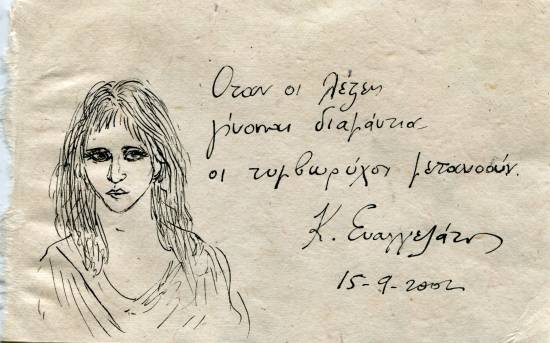 Οταν οι λέξεις
γίνονται διαμάντια
οι τυμβωρύχοι μετανοούν.
Κ. Ευαγγελάτος
15-9-2002